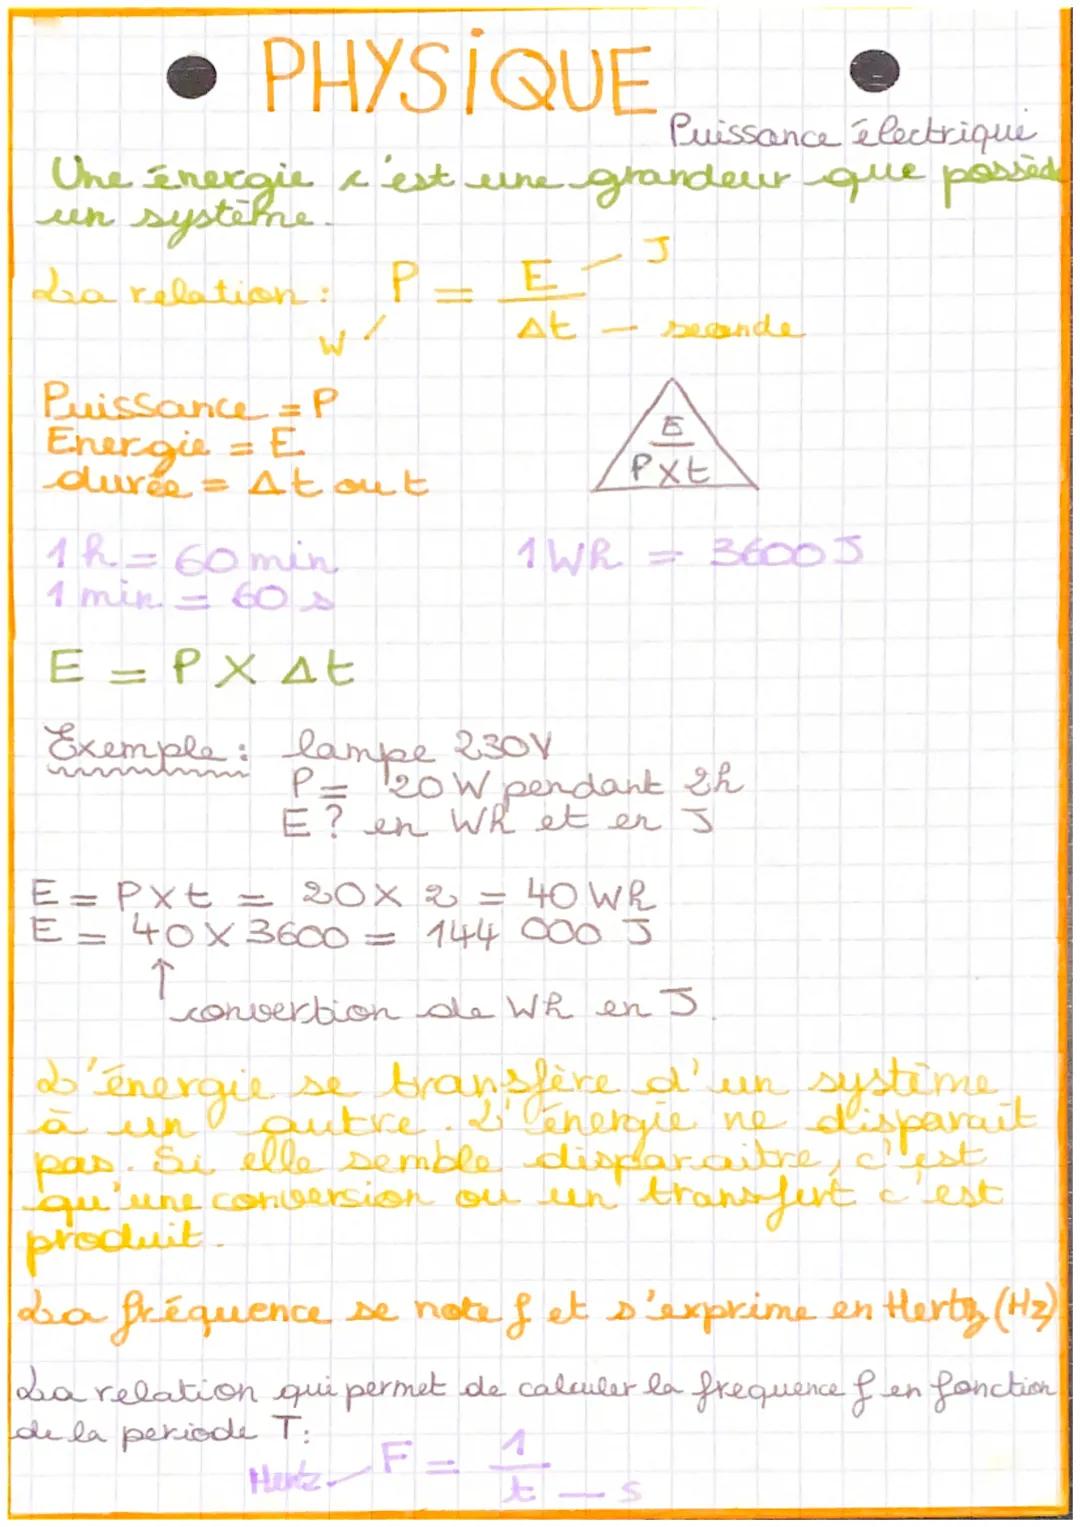 PHYSIQUE
Puissance électrique
Une énergie c'est une grandeur que possèd
un système.
La relation : P = E / Δt
J
W
seconde
Puissance = P
Energie = E
durée = Δt ou t
E
P X t
1 h = 60 min
1 Wh = 3600 J
1 min = 60 s
E = P X Δt
Exemple : lampe 230V
P = 20 W pendant 2h
E ? en Wh et en J
E = P X t = 20 X 2 = 40 Wh
E = 40 X 3600 = 144 000 J
↑
convertion de Wh en J.
L'énergie se transfère d'un système
à un autre. L'énergie ne disparait
pas. Si elle semble disparaitre, c'est
qu'une conversion ou un transfert c'est
produit.
La fréquence se note f et s'exprime en Hertz (Hz)
La relation qui permet de calculer la frequence f en fonction
de la periode T:
Hertz F = 1 / t s